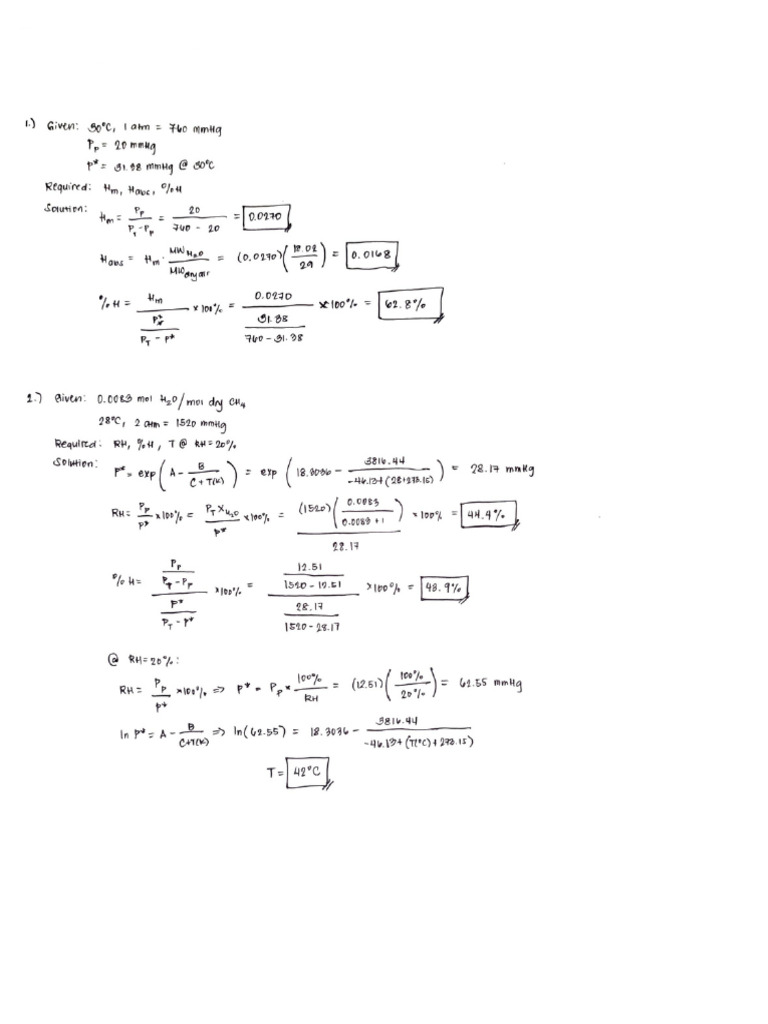 1.) Given: 30°C, 1 atm = 760 mmHg
Pp = 20 mmHg
P* = 31.38 mmHg @ 30°C
Required: Hm, Habs, %H
Solution: Hm = Pp / (PT - Pp) = 20 / (760 - 20) = 0.0270
Habs = Hm · MW H2O / MW dry air = (0.0270)(18.02 / 29) = 0.0168
%H = Hm / (P* / (PT - P*)) × 100% = 0.0270 / (31.38 / (760 - 31.38)) × 100% = 62.8%
2.) Given: 0.0083 mol H2O/mol dry CH4
28°C, 2 atm = 1520 mmHg
Required: RH, %H, T @ RH = 20%
Solution: P* = exp(A - B / (C + T(K))) = exp(18.3036 - 3816.44 / (-46.13 + (28 + 273.15))) = 28.17 mmHg
RH = Pp / P* × 100% = PT XH2O / P* × 100% = (1520)(0.0083 / (0.0083 + 1)) / 28.17 × 100% = 44.4%
%H = (Pp / (PT - Pp)) / (P* / (PT - P*)) × 100% = (12.51 / (1520 - 12.51)) / (28.17 / (1520 - 28.17)) × 100% = 43.9%
@ RH = 20%:
RH = Pp / P* × 100% ⇒ P* = Pp × 100% / RH = (12.51)(100% / 20%) = 62.55 mmHg
ln P* = A - B / (C + T(K)) ⇒ ln(62.55) = 18.3036 - 3816.44 / (-46.13 + (T(°C) + 273.15))
T = 42°C